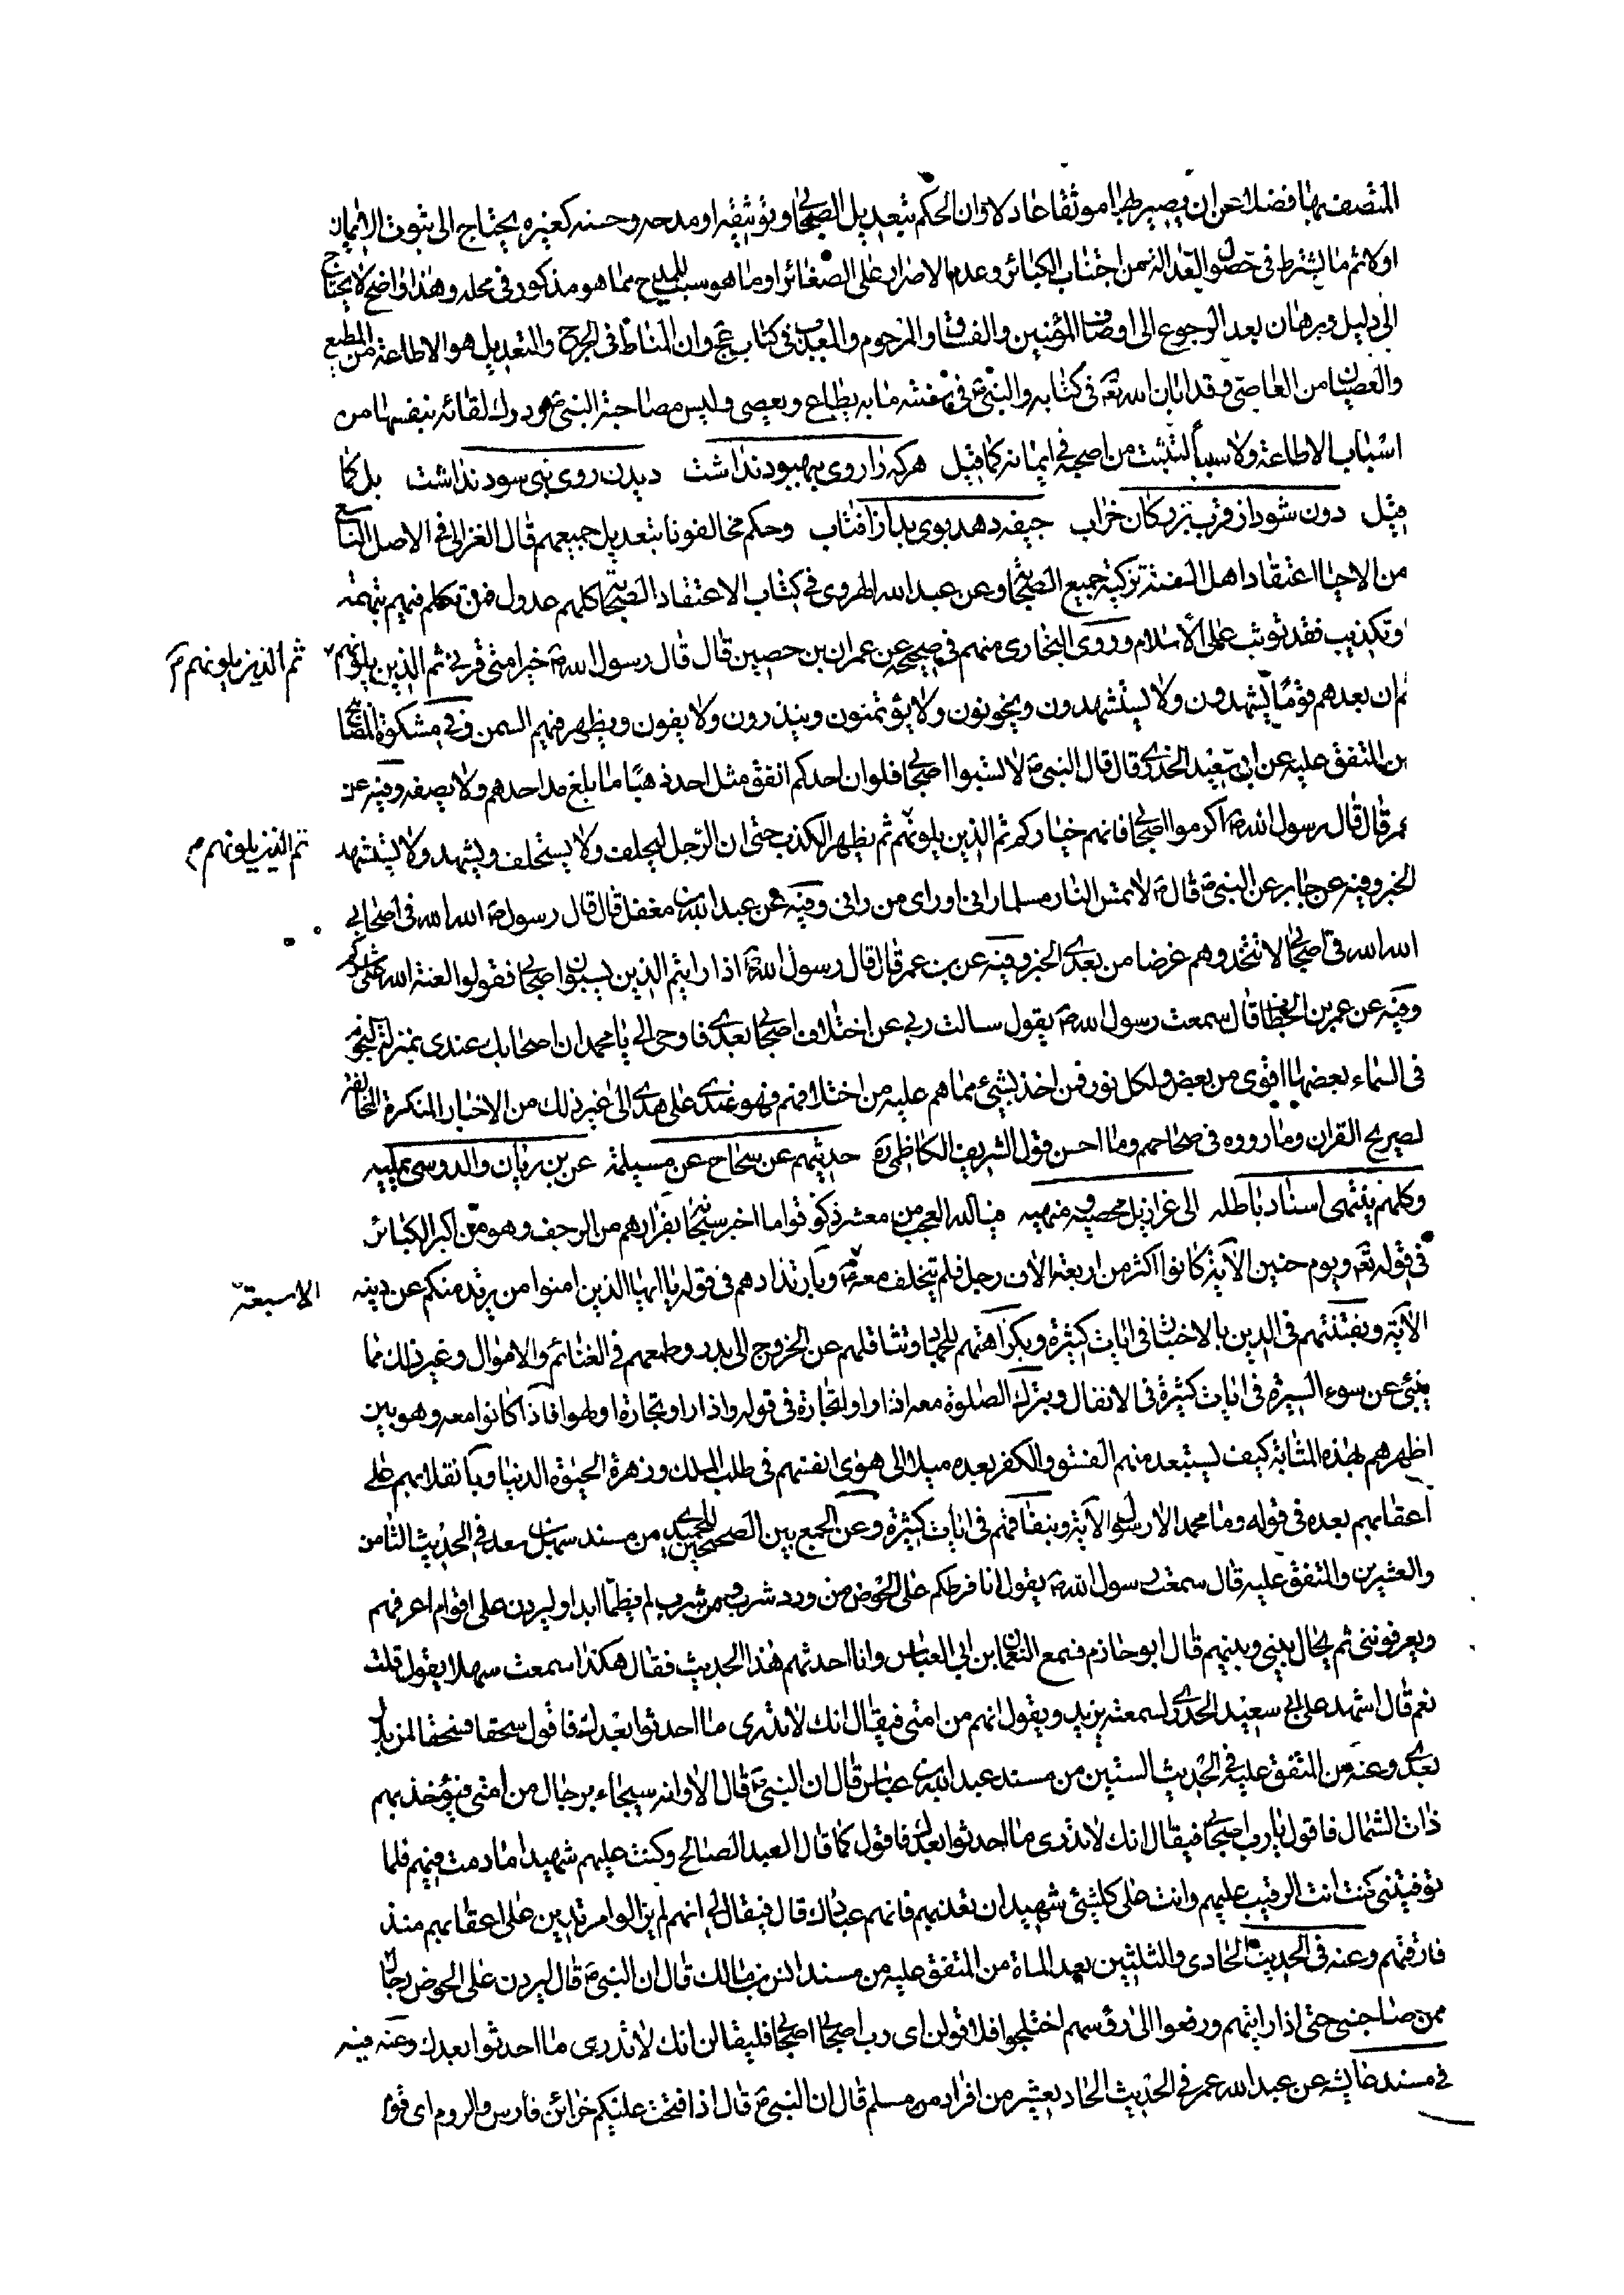 المتصف بها فضلا عن ان يصير بها موثقا عادلا وان الحكم بتعديل الصحابي وتوثيقه او مدحه وحسنه كغيره يحتاج الى ثبوت الايمان
اولا ثم ما يشترط في حصول العدالة من اجتناب الكبائر وعدم الاصرار على الصغائر او ما هو سبب للمدح مما هو مذكور في محله وهذا واضح لا يحتاج
الى دليل وبرهان بعد الرجوع الى اوصاف المؤمنين والفساق والمرحوم والمعذب في كتاب عج وان المناط في الجرح والتعديل هو الاطاعة من المطيع
والعصيان من العاصي وقد ابان الله تع في كتابه والنبي ص في سنته ما به يطاع ويعصى وليس مصاحبة النبي ص ودرك لقائه بنفسها من
اسباب الاطاعة ولا سببا لتثبت من اصحبه في ايمانه كما قيل هركه را روى بهبود نداشت ديدن روى نبي سود نداشت بل كما
قيل دون شود از قرب بزركان خراب جيفه دهد بوى بد از افتاب وحكم مخالفونا بتعديل جميعهم قال الغزالي في الاصل التاسع
من الاحيا اعتقاد اهل السنة تزكية جميع الصحابة وعن عبد الله الهروي في كتاب الاعتقاد الصحابة كلهم عدول فمن تكلم فيهم بتهمة
او تكذيب فقد توثب على الاسلام وروى البخاري منهم في صحيحه عن عمران بن حصين قال قال رسول الله ص خير امتي قرني ثم الذين يلونهم
ثم الذين يلونهم م
ثم ان بعدهم قوما يشهدون ولا يستشهدون ويخونون ولا يؤتمنون وينذرون ولا يفون ويظهر فيهم السمن وفي مشكوة المصابيح
من المتفق عليه عن ابي سعيد الخدري قال قال النبي ص لا تسبوا اصحابي فلو ان احدكم انفق مثل احد ذهبا ما بلغ مد احدهم ولا نصفه وفيه عن
عمر قال قال رسول الله ص اكرموا اصحابي فانهم خياركم ثم الذين يلونهم ثم يظهر الكذب حتى ان الرجل ليحلف ولا يستحلف ويشهد ولا يستشهد
ثم الذين يلونهم م
الخبر وفيه عن جابر عن النبي ص قال ص لا تمس النار مسلما راني او راى من راني وفيه عن عبد الله بن مغفل قال قال رسول ص الله الله في اصحابي
الله الله في اصحابي لا تتخذوهم غرضا من بعدي الخبر وفيه عن بن عمر قال قال رسول الله ص اذا رايتم الذين يسبون اصحابي فقولوا لعنة الله على شركم
وفيه عن عمر بن الخطاب قال سمعت رسول الله ص يقول سالت ربي عن اختلاف اصحابي بعدي فاوحى الي يا محمد ان اصحابك عندي بمنزلة النجوم
في السماء بعضها اقوى من بعض ولكل نور فمن اخذ بشيء مما هم عليه من اختلافهم فهو عندي على هدى الى غير ذلك من الاخبار المنكرة المخالفة
لصريح القران وما رووه في صحاحهم وما احسن قول الشريف الكاظمي ره حديثهم عن سجاح عن مسيلمة عن بن ريان والدوسي يمليه
وكلهم ينتهى اسناد باطله الى عزازيل محصيه ومنهيه فيا لله العجب من معشر ذكوا قواما اخبر سبحانه بفرارهم من الزحف وهو من اكبر الكبائر
في قوله تع ويوم حنين الآية كانوا اكثر من اربعة الاف رجل فلم يتخلف معه ص وبارتدادهم في قوله يا ايها الذين امنوا من يرتد منكم عن دينه
الا سبعة
الآية وبفتنتهم في الدين بالاخبات في ايات كثيرة وبكراهتهم للجهاد وتثاقلهم عن الخروج الى بدر وطمعهم في الغنائم والاموال وغير ذلك مما
ينبئ عن سوء السيرة في ايات كثيرة في الانفال وبترك الصلوة معه اذا راوا لتجارة في قوله واذا راو تجارة او لهوا فاذا كانوا معه وهو بين
اظهرهم بهذه المثابة كيف يستبعد منهم الفسق والكفر بعده ميلا الى هوى انفسهم في طلب الملك وزهرة الحيوة الدنيا وبانقلابهم على
اعقابهم بعده في قوله وما محمد الا رسول الآية وبنفاقهم في ايات كثيرة وعن الجمع بين الصحيحين للحميدي من مسند سهل بن سعد في الحديث الثامن
والعشرين والمتفق عليه قال سمعت رسول الله ص يقول انا فرطكم على الحوض من ورد شرب ومن شرب لم يظما ابدا وليردن على اقوام اعرفهم
ويعرفونني ثم يحال بيني وبينهم قال ابو حازم فسمع النعمان ابن ابي العباس وانا احدثهم هذا الحديث فقال هكذا سمعت سهلا يقول قلت
نعم قال اشهد على ابي سعيد الخدري لسمعته يزيد ويقول انهم من امتي فيقال انك لا تدري ما احدثوا بعدك فاقول سحقا سحقا لمن بدل
بعدي وعنه من المتفق عليه في الحديث الستين من مسند عبد الله بن عباس قال ان النبي ص قال الا وانه سيجاء برجال من امتي فيؤخذ بهم
ذات الشمال فاقول يا رب اصحابي فيقال انك لا تدري ما احدثوا بعدك فاقول كما قال العبد الصالح وكنت عليهم شهيدا ما دمت فيهم فلما
توفيتني كنت انت الرقيب عليهم وانت على كلشئ شهيد ان تعذبهم فانهم عبادك قال فيقال لي انهم لم يزالوا مرتدين على اعقابهم منذ
فارقتهم وعنه في الحديث الحادي والثلثين بعد الماة من المتفق عليه من مسند انس بن مالك قال ان النبي ص قال ليردن على الحوض رجال
ممن صاحبني حتى اذا رايتهم ورفعوا الى رؤسهم اختلجوا فلاقولن اى رب اصحابي اصحابي فليقالن انك لا تدرى ما احدثوا بعدك وعنه فيه
في مسند عايشه عن عبد الله عمر في الحديث الحاد بعشر من افراد من مسلم قال ان النبي ص قال اذا فتحت عليكم خزائن فارس والروم اى قوم